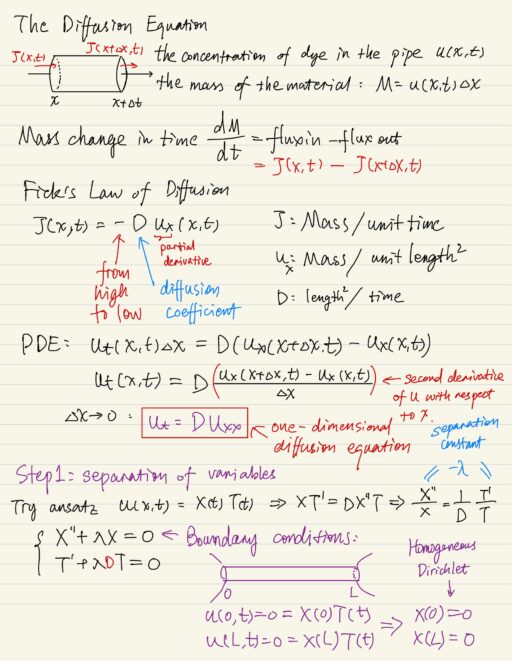 The Diffusion Equation
J(x,t) J(x+Δx,t) the concentration of dye in the pipe u(x,t)
x x+Δt the mass of the material: M = u(x,t)Δx
Mass change in time dM/dt = flux in - flux out
= J(x,t) - J(x+Δx,t)
Fick's Law of Diffusion
J(x,t) = - D ux(x,t)
partial
derivative
from
high
to low
diffusion
coefficient
J: Mass/unit time
ux: Mass/unit length²
D: length²/time
PDE: ut(x,t)Δx = D(ux(x+Δx,t) - ux(x,t))
ut(x,t) = D(ux(x+Δx,t) - ux(x,t)/Δx) ← second derivative
of u with respect
to x
Δx→0: ut = Duxx ← one-dimensional
diffusion equation
separation
constant
Step1: separation of variables
-λ
Try ansatz u(x,t) = X(t)T(t) ⇒ XT' = DX"T ⇒ X"/X = 1/D T'/T
{ X" + λX = 0 ← Boundary conditions:
T' + λDT = 0
Homogeneous
Dirichlet
0 L
u(0,t)=0 = X(0)T(t) ⇒ X(0)=0
u(L,t)=0 = X(L)T(t) X(L)=0